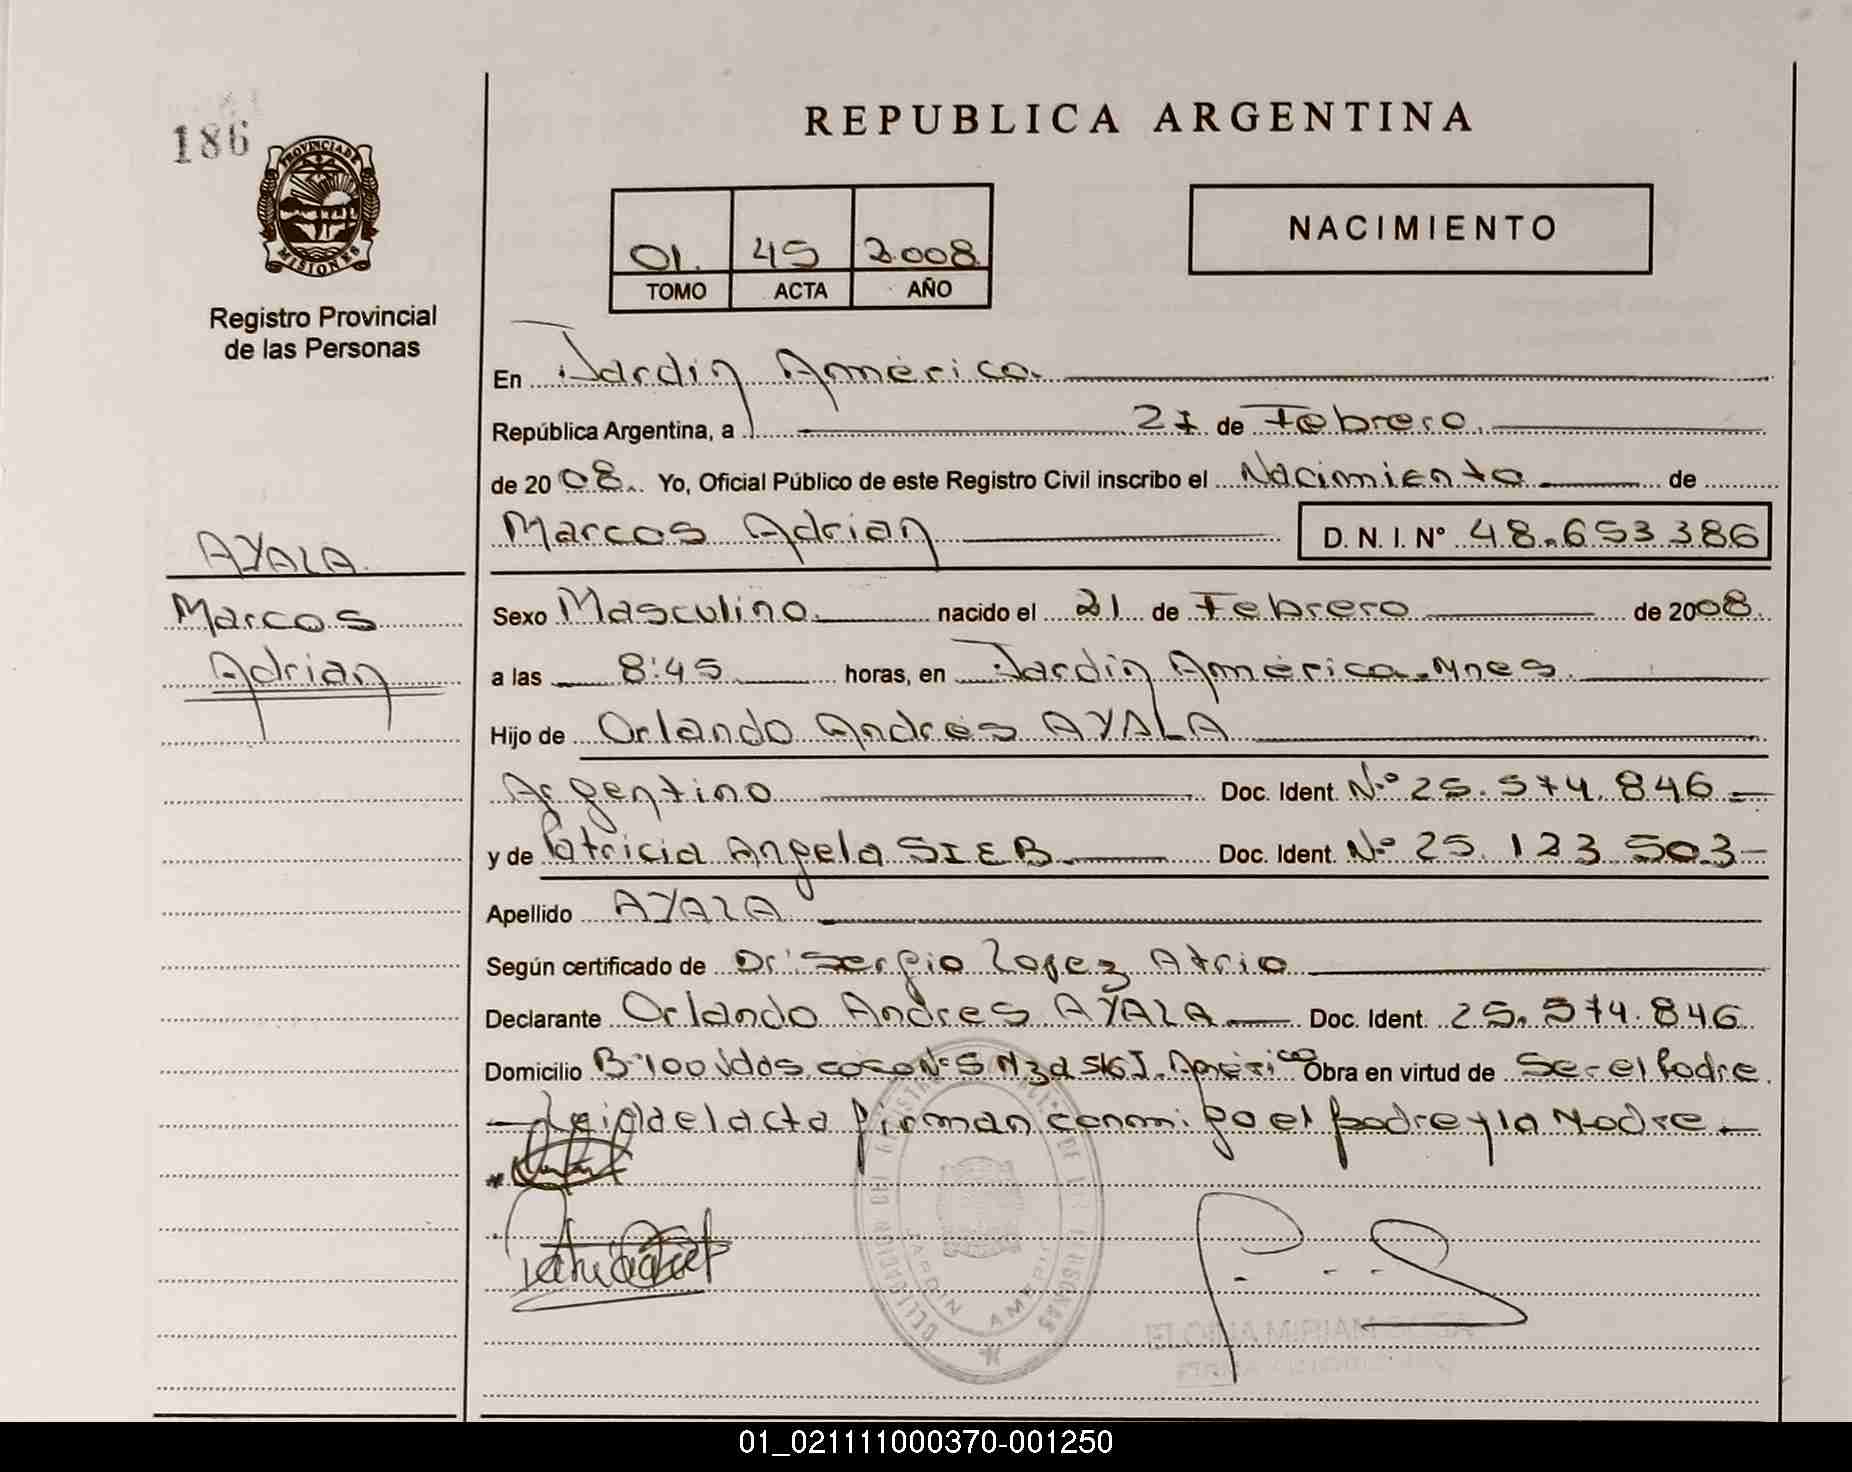 186
PROVINCIA DE
MISIONES
Registro Provincial
de las Personas
AYALA
Marcos
Adrian
REPUBLICA ARGENTINA
01. 45 2008
TOMO ACTA AÑO
NACIMIENTO
En Jardin América.
República Argentina, a 21 de Febrero
de 2008. Yo, Oficial Público de este Registro Civil inscribo el Nacimiento de
Marcos Adrian D. N. I. Nº 48.653386
Sexo Masculino nacido el 21 de Febrero de 2008.
a las 8:45 horas, en Jardin América. Mnes
Hijo de Orlando Andres AYALA
Argentino Doc. Ident. Nº 25.574.846
y de Patricia Angela SIEB Doc. Ident. Nº 25.123.503
Apellido AYALA
Según certificado de Dr. Sergio Lopez Atrio
Declarante Orlando Andres AYALA Doc. Ident. 25.574.846
Domicilio B-100 Vdas casa Nº 5 Mza Obra en virtud de Ser el Padre
Leida el acta firman conmigo el padre y la Madre
DELEGACION DEL REGISTRO DE LAS PERSONAS
JARDIN AMERICA
MIRIAM SOSA
01_021111000370-001250